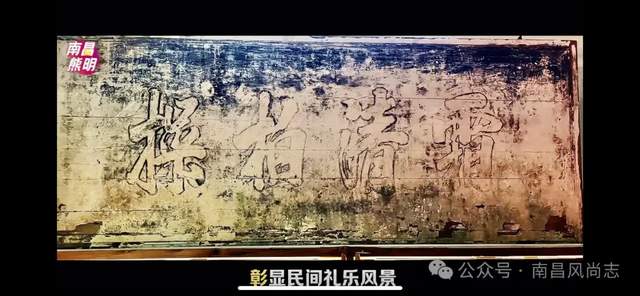 南昌
熊明
霜清柏操
彰显民间礼乐风景
公众号·南昌风尚志